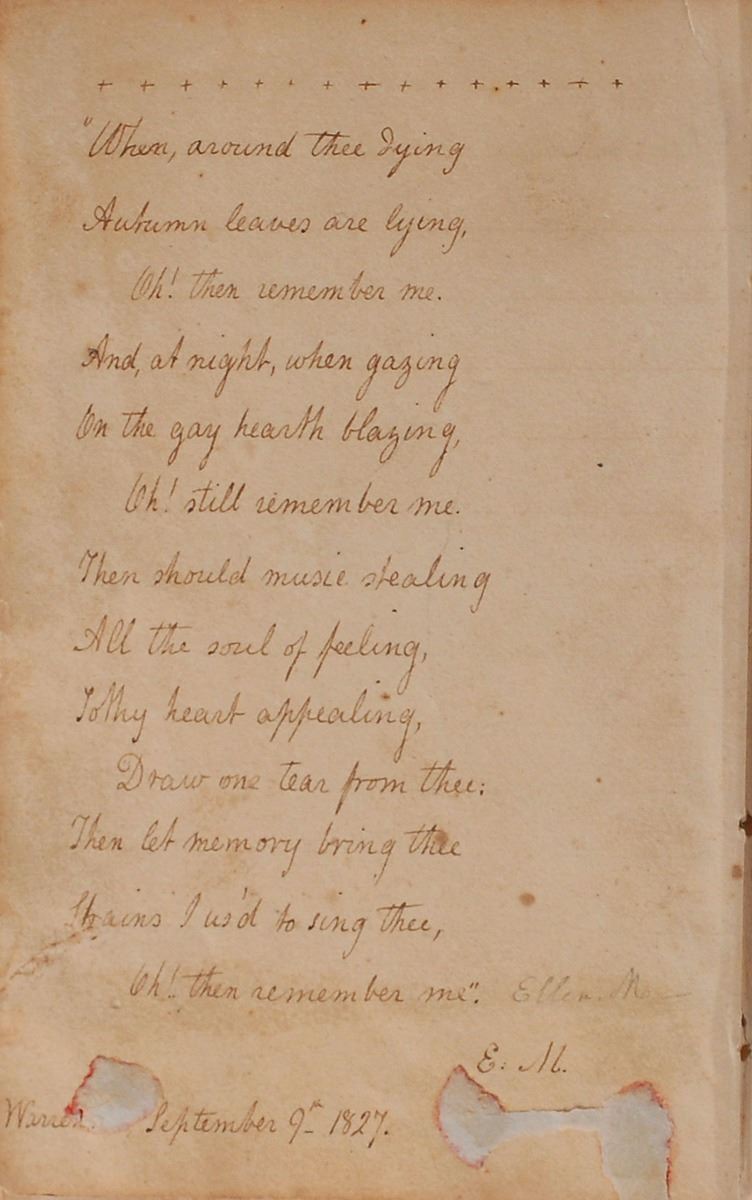 + + + + + + + + + + + + + + +
"When, around thee dying
Autumn leaves are lying,
Oh! then remember me.
And, at night, when gazing
On the gay hearth blazing,
Oh! still remember me.
Then should music stealing
All the soul of feeling,
To thy heart appealing,
Draw one tear from thee;
Then let memory bring thee
Strains I us'd to sing thee,
Oh! then remember me". Ellen
E. M.
Warren. September 9th 1827.